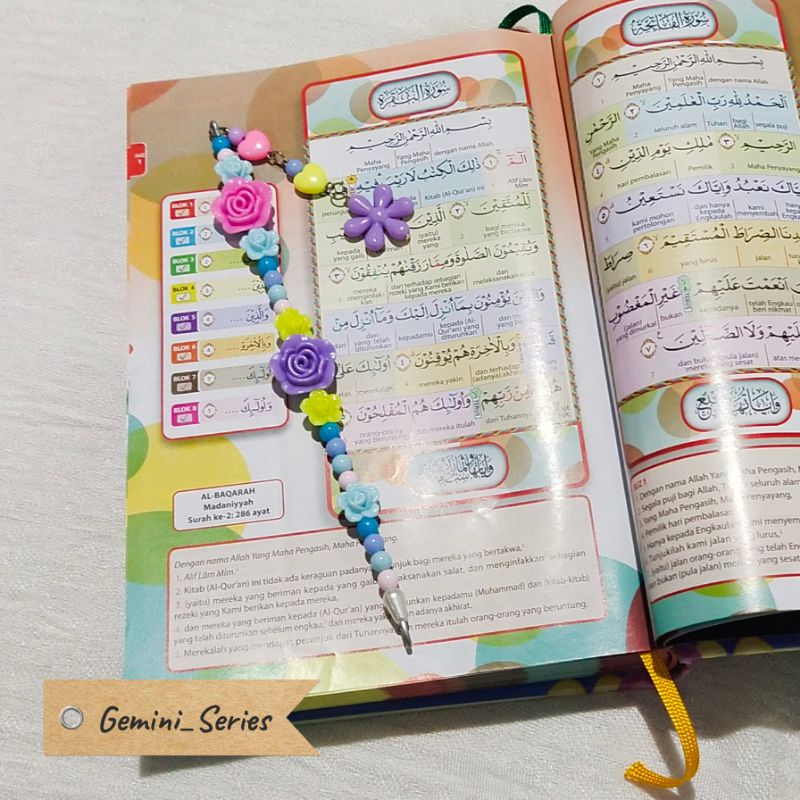 سُورَةُ الْبَقَرَةِ
بِسْمِ اللّٰهِ الرَّحْمٰنِ الرَّحِيْمِ
Maha Penyayang
Yang Maha Pengasih
dengan nama Allah
الٓمّٓ
ذٰلِكَ الْكِتٰبُ لَا رَيْبَ فِيْهِ
Kitab (Al-Qur'an) ini
Alif Lām Mīm
لِّلْمُتَّقِيْنَ
الَّذِيْنَ
kepada yang gaib
(yaitu) mereka yang
bagi mereka yang bertakwa
وَيُقِيْمُوْنَ الصَّلٰوةَ وَمِمَّا رَزَقْنٰهُمْ يُنْفِقُوْنَ
mereka menginfak-kan
dan terhadap sebagian rezeki yang Kami berikan kepada mereka
dan melaksanakan salat
وَالَّذِيْنَ يُؤْمِنُوْنَ بِمَآ اُنْزِلَ اِلَيْكَ وَمَآ اُنْزِلَ مِنْ
dari
dan yang telah diturunkan
kepadamu
kepada (Al-Qur'an) yang diturunkan
beriman
وَبِالْاٰخِرَةِ هُمْ يُوْقِنُوْنَ
اُولٰۤىِٕكَ عَلٰى
mereka yakin
dan terhadap (adanya) akhirat
مِّنْ رَّبِّهِمْ وَاُولٰۤىِٕكَ هُمُ الْمُفْلِحُوْنَ
orang-orang yang beruntung
mereka
dan mereka itulah
dari Tuhannya
JUZ 1
BLOK 1
BLOK 2
BLOK 3
BLOK 4
BLOK 5
وَالَّذِيْنَ ....
BLOK 6
وَبِالْاٰخِرَةِ ....
BLOK 7
اُولٰۤىِٕكَ ....
BLOK 8
وَاُولٰۤىِٕكَ ....
AL-BAQARAH
Madaniyyah
Surah ke-2: 286 ayat
Dengan nama Allah Yang Maha Pengasih, Maha
1. Alif Lām Mīm.
2. Kitab (Al-Qur'an) ini tidak ada keraguan padanya; petunjuk bagi mereka yang bertakwa,
3. (yaitu) mereka yang beriman kepada yang gaib, melaksanakan salat, dan menginfakkan sebagian
rezeki yang Kami berikan kepada mereka,
4. dan mereka yang beriman kepada (Al-Qur'an) yang diturunkan kepadamu (Muhammad) dan (kitab-kitab)
yang telah diturunkan sebelum engkau, dan mereka yakin akan adanya akhirat.
5. Merekalah yang mendapat petunjuk dari Tuhannya, dan mereka itulah orang-orang yang beruntung.
سُورَةُ الْفَاتِحَةِ
بِسْمِ اللّٰهِ الرَّحْمٰنِ الرَّحِيْمِ
Maha Penyayang
Yang Maha Pengasih
dengan nama Allah
اَلْحَمْدُ لِلّٰهِ رَبِّ الْعٰلَمِيْنَ
الرَّحْمٰنِ
Yang Maha Pengasih
seluruh alam
Tuhan
bagi Allah
segala puji
الرَّحِيْمِ
مٰلِكِ يَوْمِ الدِّيْنِ
hari pembalasan
Pemilik
Maha Penyayang
نَعْبُدُ وَاِيَّاكَ نَسْتَعِيْنُ
kami mohon pertolongan
dan hanya kepada Engkau
kami menyembah
الصِّرَاطَ الْمُسْتَقِيْمَ
صِرَاطَ
(yaitu) jalan
yang lurus
jalan
اَنْعَمْتَ عَلَيْهِمْ
غَيْرِ الْمَغْضُوْبِ
(jalan) mereka yang dimurkai
bukan
kepadanya
telah Engkau beri nikmat
عَلَيْهِمْ وَلَا الضَّاۤلِّيْنَ
mereka yang sesat
dan bukan (pula jalan)
JUZ 1
1. Dengan nama Allah Yang Maha Pengasih,
2. Segala puji bagi Allah, Tuhan seluruh alam
3. Yang Maha Pengasih, Maha Penyayang,
4. Pemilik hari pembalasan
5. Hanya kepada Engkaulah
6. Tunjukilah kami jalan yang lurus,
7. (yaitu) jalan orang-orang yang telah
dan bukan (pula jalan) mereka yang sesat
Gemini_Series